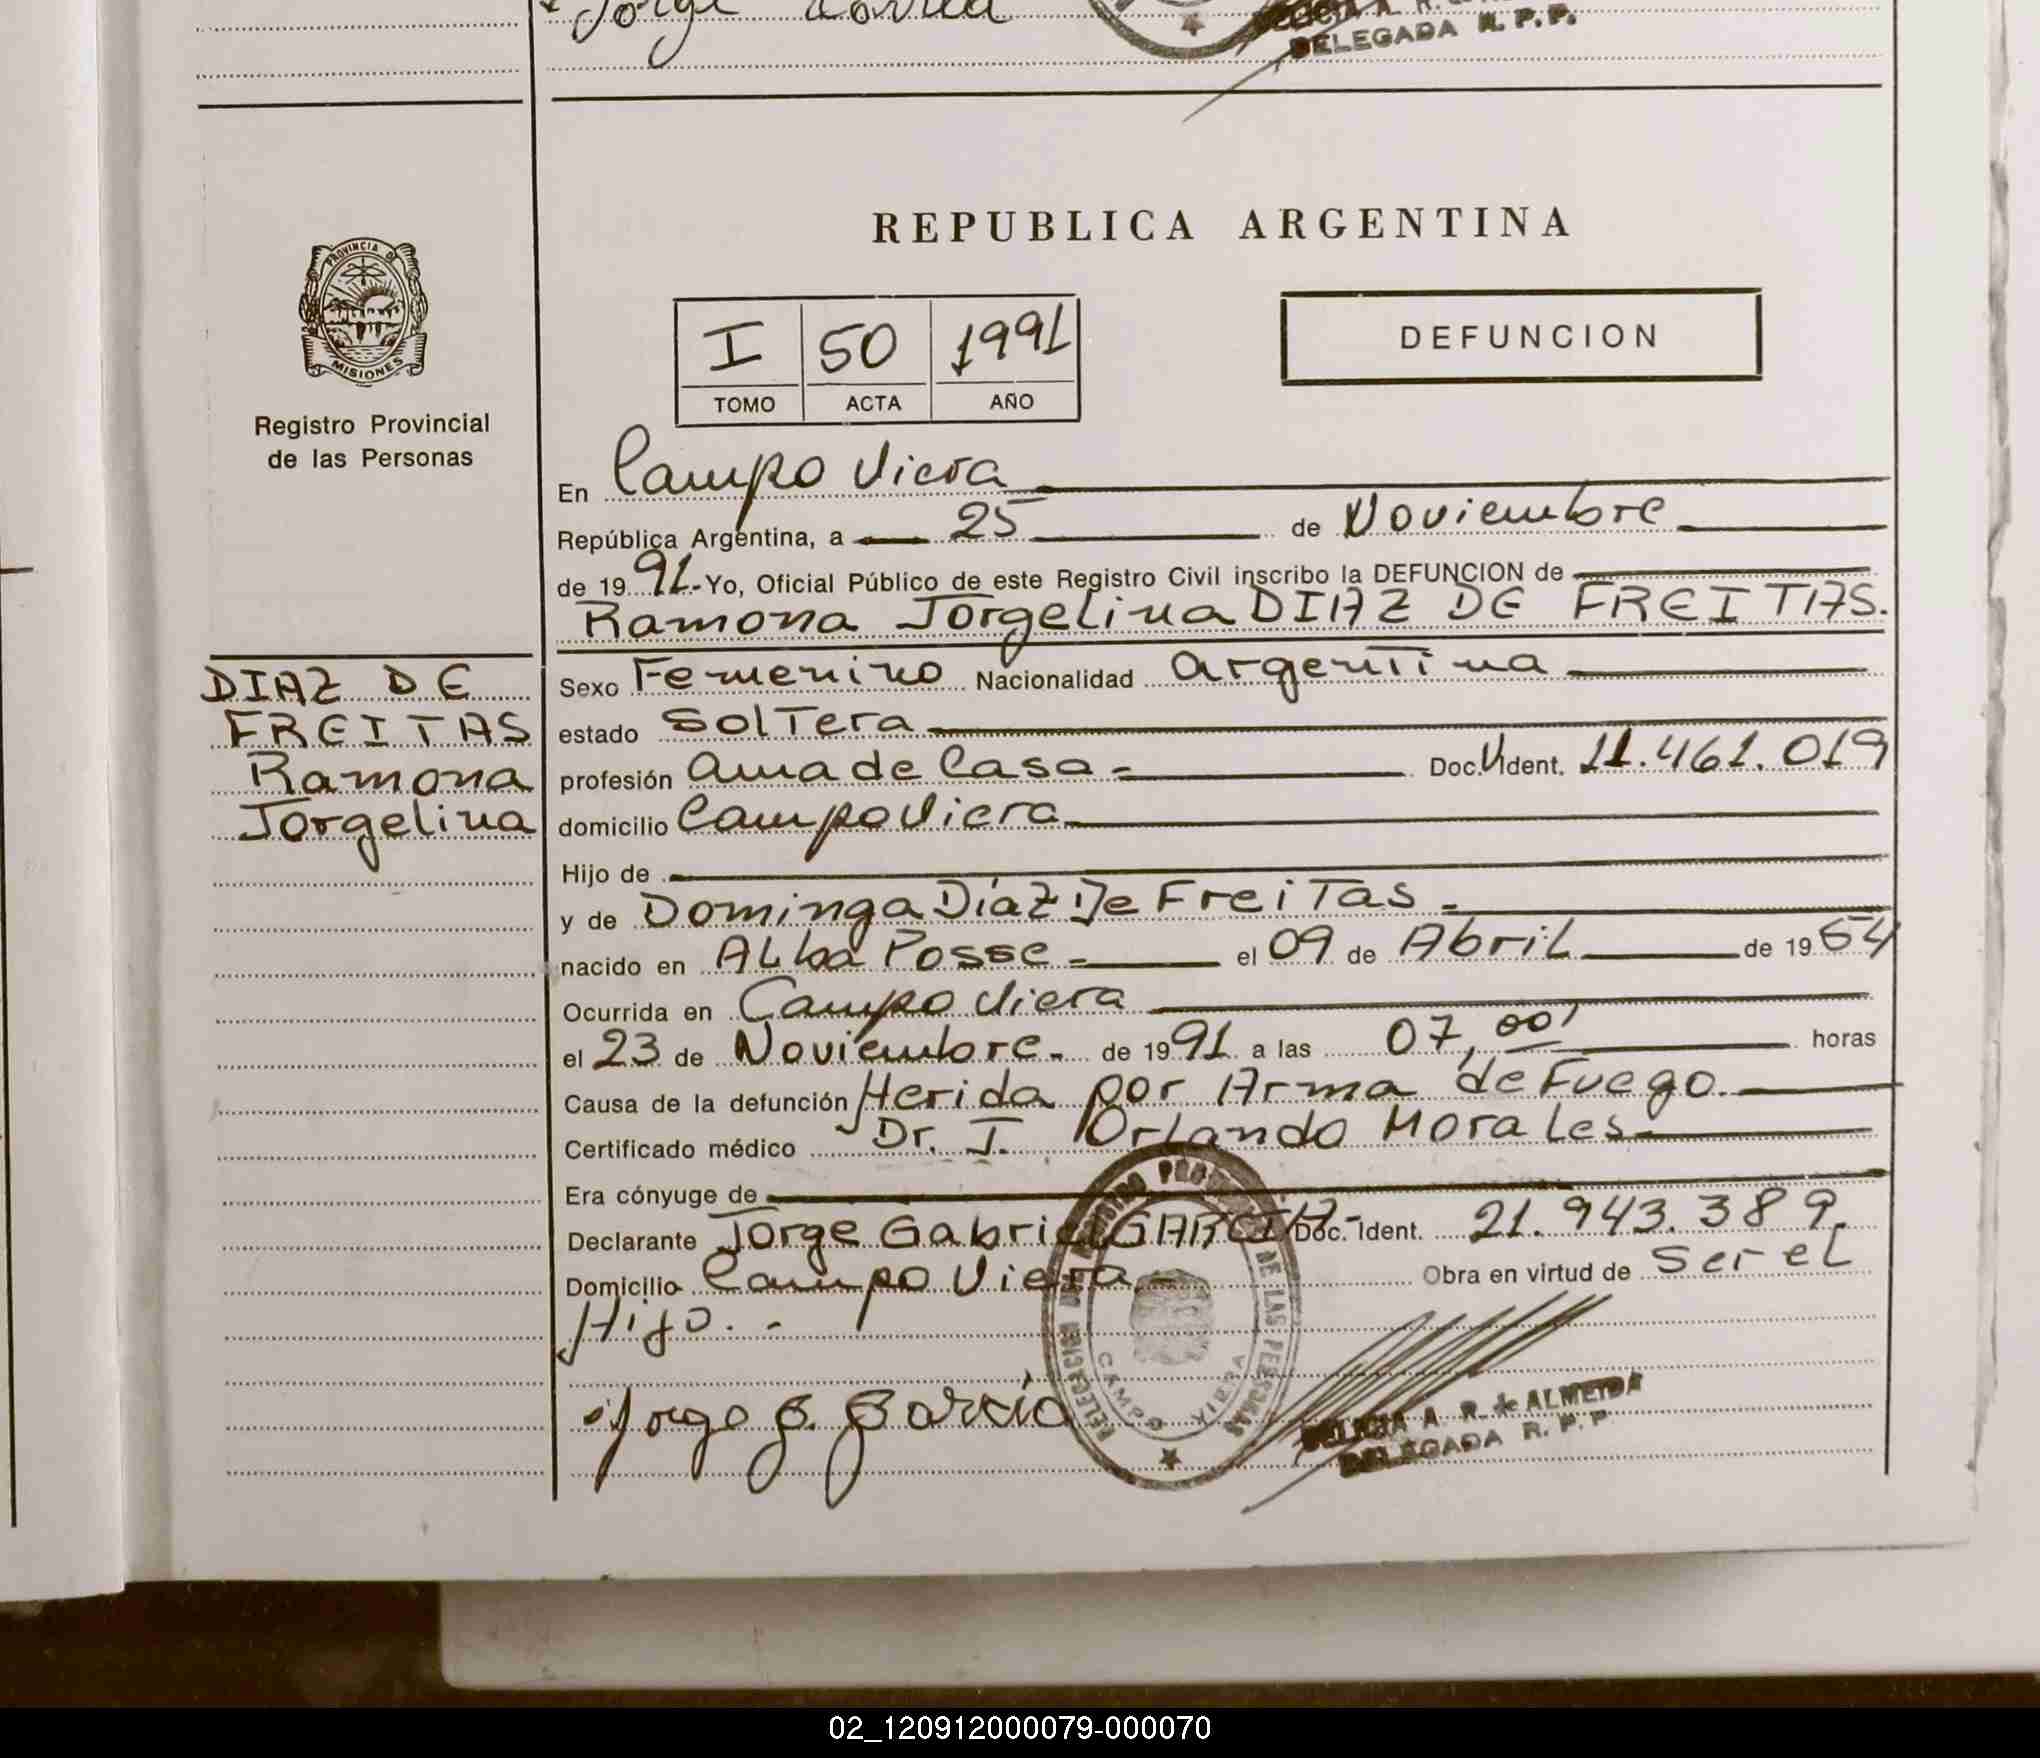 Jorge Correa
DELEGADA R. P. P.
REPUBLICA ARGENTINA
PROVINCIA DE
MISIONES
Registro Provincial
de las Personas
I 50 1991
TOMO ACTA AÑO
DEFUNCION
En Campo Viera
República Argentina, a 25 de Noviembre
de 19 91.- Yo, Oficial Público de este Registro Civil inscribo la DEFUNCION de
Ramona Jorgelina DIAZ DE FREITAS.
DIAZ DE
FREITAS
Ramona
Jorgelina
Sexo Femenino Nacionalidad Argentina
estado Soltera
profesión Ama de Casa - Doc. Ident. 11.461.019
domicilio Campo Viera
Hijo de
y de Dominga Díaz De Freitas -
nacido en Alba Posse - el 09 de Abril de 19 54
Ocurrida en Campo Viera
el 23 de Noviembre - de 19 91 a las 07,00' horas
Causa de la defunción Herida por Arma de Fuego.
Certificado médico Dr. J. Orlando Morales
Era cónyuge de
Declarante Jorge Gabriel GARCIA - Doc. Ident. 21.943.389.
Domicilio Campo Viera - Obra en virtud de ser el
Hijo. -
Jorge G. Garcia
DE LAS PERSONAS
CAMPO VIERA
DELICIA A. R. de ALMEIDA
DELEGADA R. P. P.
02_120912000079-000070